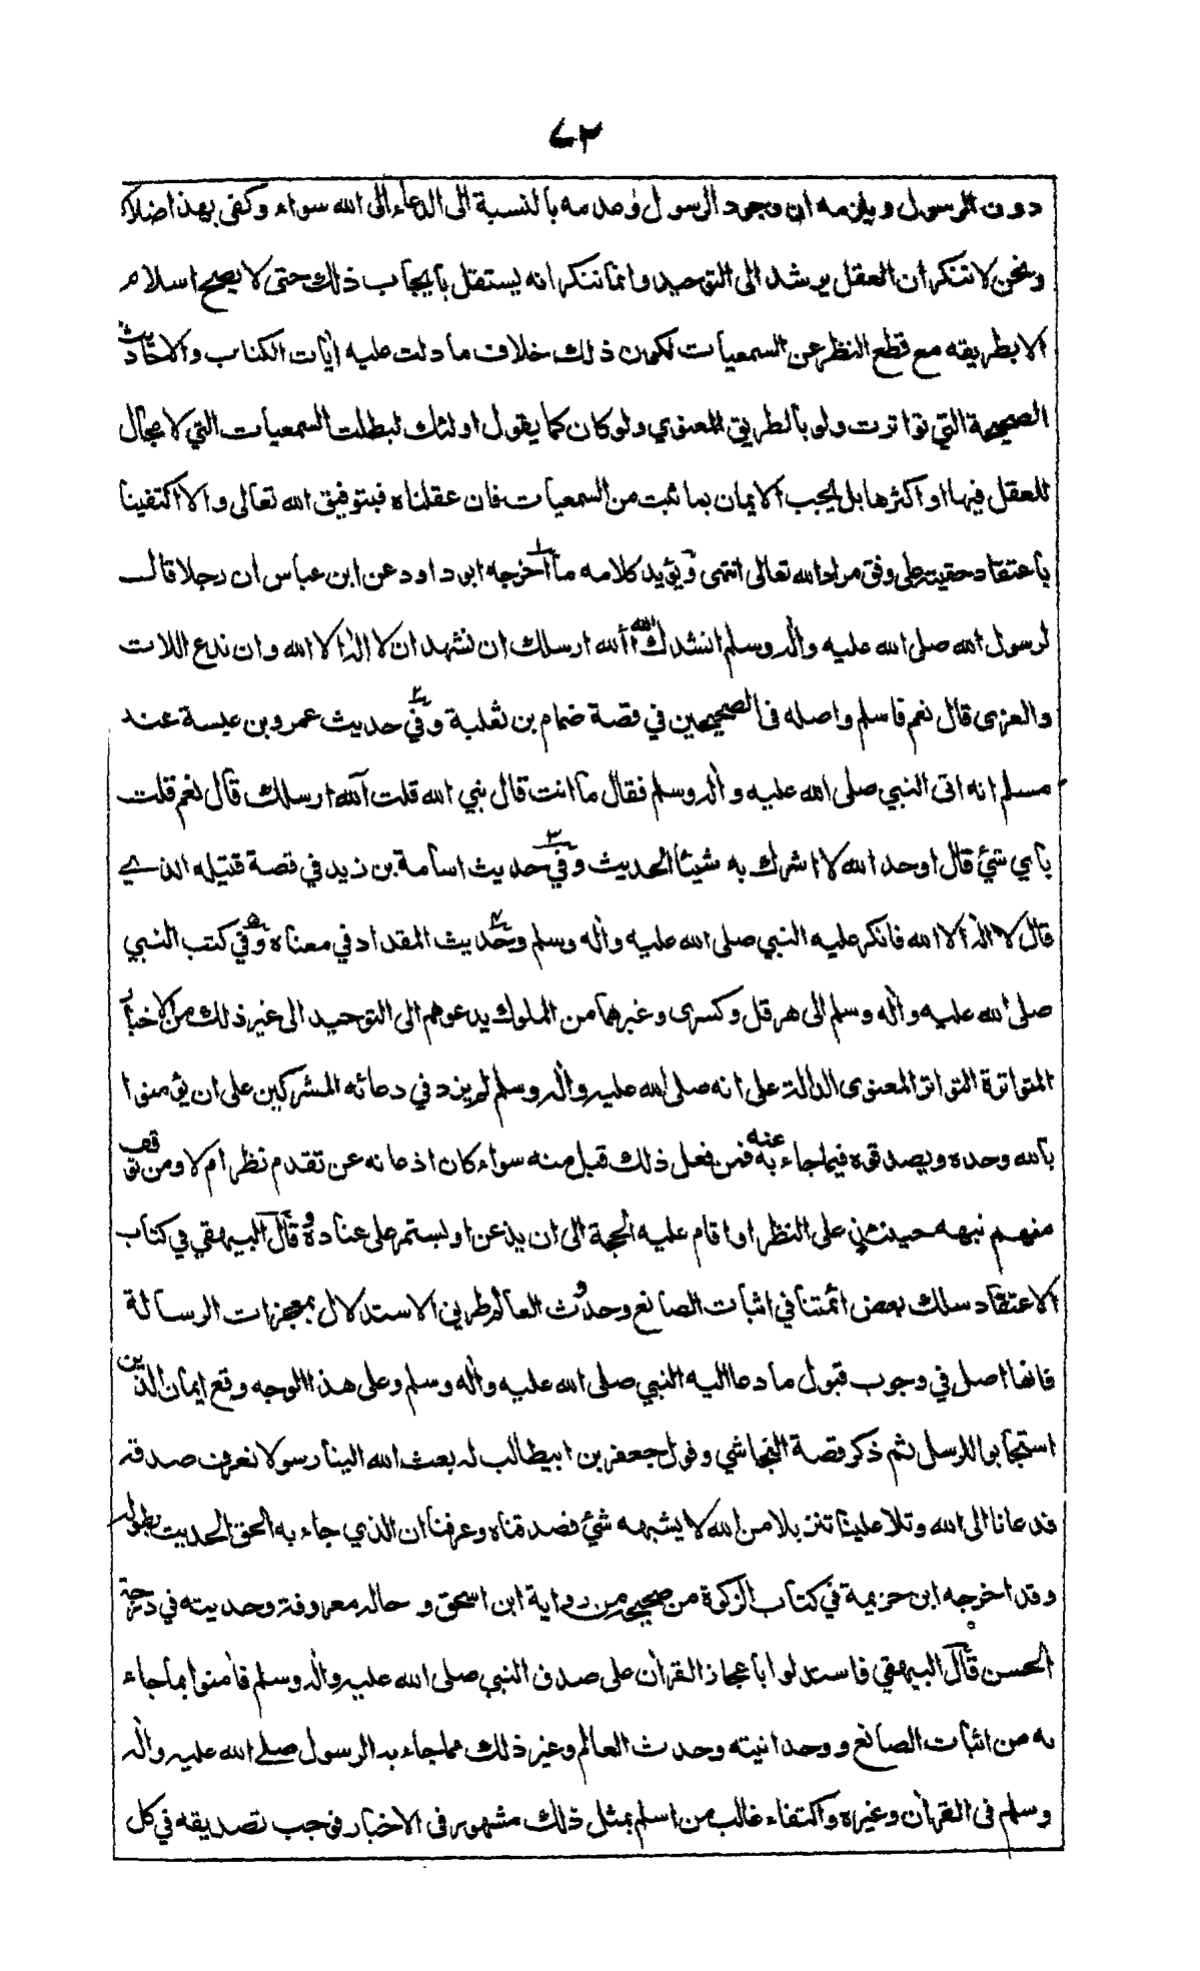 ٧٣
دون الرسول ويلزمه ان وجود الرسول وعدمه بالنسبة الى الدعاء الى الله سواء وكفى بهذا ضلالا
ونحن لا ننكر ان العقل يرشد الى التوحيد وانما ننكر انه يستقل بايجاب ذلك حتى لا يصح اسلام
الا بطريقه مع قطع النظر عن السمعيات لكون ذلك خلاف ما دلت عليه ايات الكتاب والاحاديث
الصحيحة التي تواترت ولو بالطريق المعنوي ولو كان كما يقول اولئك لبطلت السمعيات التي لا مجال
للعقل فيها او اكثرها بل يجب الايمان بما ثبت من السمعيات فان عقلناه فبتوفيق الله تعالى والا اكتفينا
باعتقاد حقيته على وفق مراد الله تعالى انتهى ويؤيد كلامه ما اخرجه ابو داود عن ابن عباس ان رجلا قال
لرسول الله صلى الله عليه واله وسلم انشدك الله أالله ارسلك ان نشهد ان لا اله الا الله وان ندع اللات
والعزى قال نعم فاسلم واصله فى الصحيحين في قصة ضمام بن ثعلبة وفي حديث عمرو بن عبسة عند
مسلم انه اتى النبي صلى الله عليه واله وسلم فقال ما انت قال نبي الله قلت آلله ارسلك قال نعم قلت
باي شئ قال اوحد الله لا اشرك به شيئا الحديث وفي حديث اسامة بن زيد في قصة قتيله الذي
قال لا اله الا الله فانكر عليه النبي صلى الله عليه واله وسلم وحديث المقداد في معناه وفي كتب النبي
صلى الله عليه واله وسلم الى هرقل وكسرى وغيرهما من الملوك يدعوهم الى التوحيد الى غير ذلك من الاخبار
المتواترة التواتر المعنوى الدالة على انه صلى الله عليه واله وسلم لم يزد في دعائه المشركين على ان يؤمنوا
بالله وحده ويصدقوه فيما جاء به عنه فمن فعل ذلك قبل منه سواء كان اذعانه عن تقدم نظر ام لا ومن توقف
منهم نبهه حينئذ على النظر او اقام عليه الحجة الى ان يذعن او يستمر على عناده وقال البيهقي في كتاب
الاعتقاد سلك بعض ائمتنا في اثبات الصانع وحدوث العالم طريق الاستدلال بمعجزات الرسالة
فانها اصل في وجوب قبول ما دعا اليه النبي صلى الله عليه واله وسلم وعلى هذا الوجه وقع ايمان الذين
استجابوا للرسل ثم ذكر قصة النجاشي وقول جعفر بن ابيطالب له بعث الله الينا رسولا نعرف صدقه
فدعانا الى الله وتلا علينا تنزيلا من الله لا يشبهه شئ فصدقناه وعرفنا ان الذي جاء به الحق الحديث بطوله
وقد اخرجه ابن خزيمة في كتاب الزكوة من صحيحه من رواية ابن اسحق و حاله معروفة وحديثه في درجة
الحسن قال البيهقي فاستدلوا باعجاز القران على صدق النبي صلى الله عليه واله وسلم فامنوا بما جاء
به من اثبات الصانع و وحدانيته وحدث العالم وغير ذلك مما جاء به الرسول صلى الله عليه واله
وسلم فى القران وغيره واكتفاء غالب من اسلم بمثل ذلك مشهور فى الاخبار فوجب تصديقه في كل